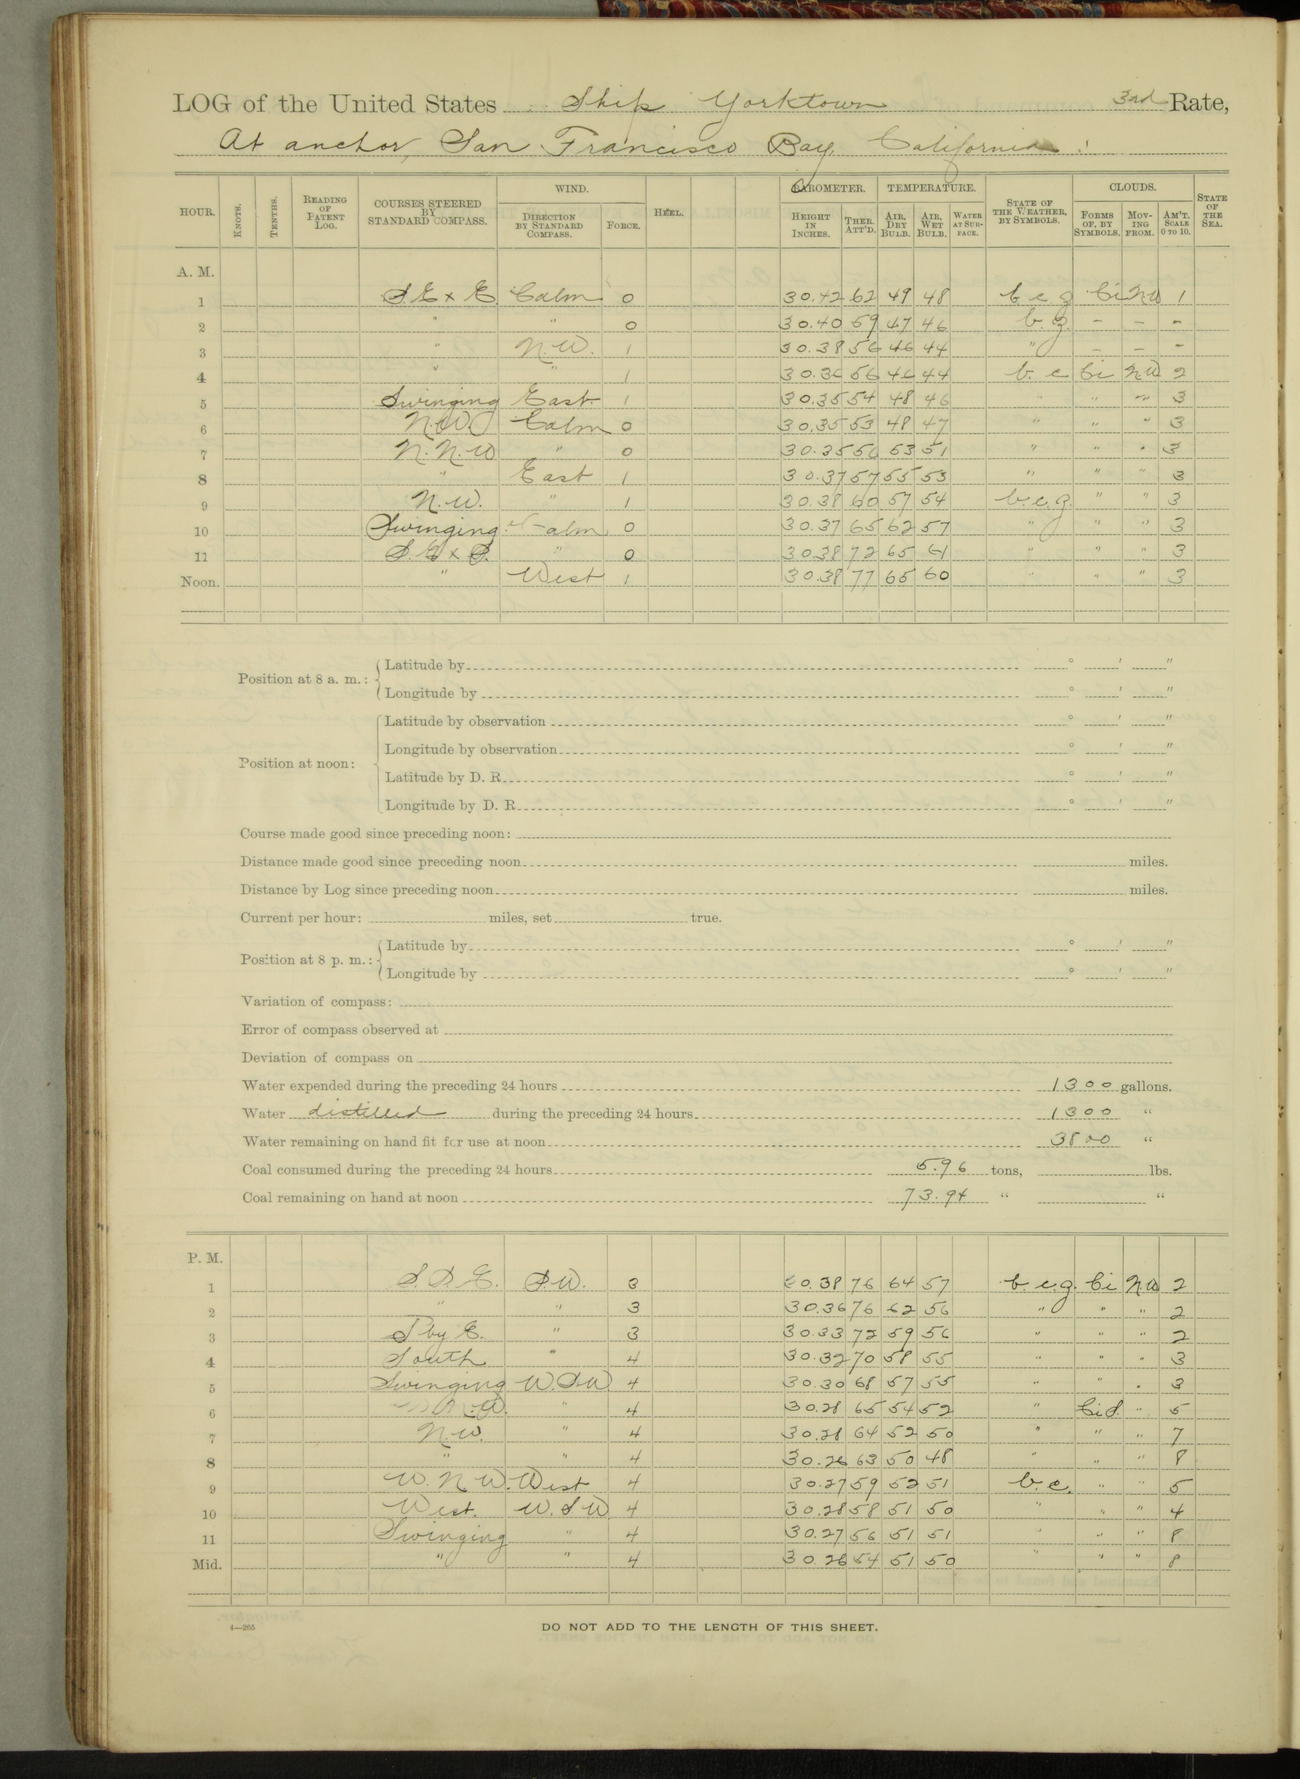 LOG of the United States Ship Yorktown 3rd Rate,
At anchor, San Francisco Bay, California.
HOUR. KNOTS. TENTHS. READING OF PATENT LOG. COURSES STEERED BY STANDARD COMPASS. WIND. DIRECTION BY STANDARD COMPASS. FORCE. HEEL. BAROMETER. HEIGHT IN INCHES. THER. ATT'D. TEMPERATURE. AIR, DRY BULB. AIR, WET BULB. WATER AT SURFACE. STATE OF THE WEATHER, BY SYMBOLS. CLOUDS. FORMS OF, BY SYMBOLS. MOVING FROM. AM'T. SCALE 0 TO 10. STATE OF THE SEA.
A. M.
1 S.E x E Calm 0 30.42 62 49 48 b c g Ci NW 1
2 " " 0 30.40 59 47 46 b. g. – – –
3 " N.W. 1 30.38 56 46 44 " – – –
4 " " 1 30.36 56 46 44 b. c Ci NW 2
5 Swinging East. 1 30.35 54 48 46 " " " 3
6 N.W. Calm 0 30.35 53 48 47 " " " 3
7 N.N.W " 0 30.35 56 53 51 " " " 3
8 " East 1 30.37 57 55 53 " " " 3
9 N.W. " 1 30.38 60 57 54 b.c.g. " " 3
10 Swinging Calm 0 30.37 65 62 57 " " " 3
11 S.E x S. " 0 30.38 72 65 61 " " " 3
Noon. " West 1 30.38 77 65 60 " " " 3
Position at 8 a. m.: Latitude by ° ' "
Longitude by ° ' "
Position at noon: Latitude by observation ° ' "
Longitude by observation ° ' "
Latitude by D. R. ° ' "
Longitude by D. R. ° ' "
Course made good since preceding noon:
Distance made good since preceding noon miles.
Distance by Log since preceding noon miles.
Current per hour: miles, set true.
Position at 8 p. m.: Latitude by ° ' "
Longitude by ° ' "
Variation of compass:
Error of compass observed at
Deviation of compass on
Water expended during the preceding 24 hours 1300 gallons.
Water distilled during the preceding 24 hours 1300 "
Water remaining on hand fit for use at noon 3800 "
Coal consumed during the preceding 24 hours 5.96 tons, lbs.
Coal remaining on hand at noon 73.94 " "
P. M.
1 S.S.E. S.W. 3 30.38 76 64 57 b.c.g. Ci NW 2
2 " " 3 30.36 76 62 56 " " " 2
3 S by E. " 3 30.33 72 59 56 " " " 2
4 South " 4 30.32 70 58 55 " " " 3
5 Swinging W.SW 4 30.30 68 57 55 " " " 3
6 " 4 30.28 65 54 52 " Ci S. " 5
7 N.W. " 4 30.28 64 52 50 " " " 7
8 " " 4 30.26 63 50 48 " " " 8
9 W.N.W. West 4 30.27 59 52 51 b.c. " " 5
10 West. W.SW 4 30.28 58 51 50 " " " 4
11 Swinging " 4 30.27 56 51 51 " " " 8
Mid. " " 4 30.26 54 51 50 " " " 8
4—265
DO NOT ADD TO THE LENGTH OF THIS SHEET.